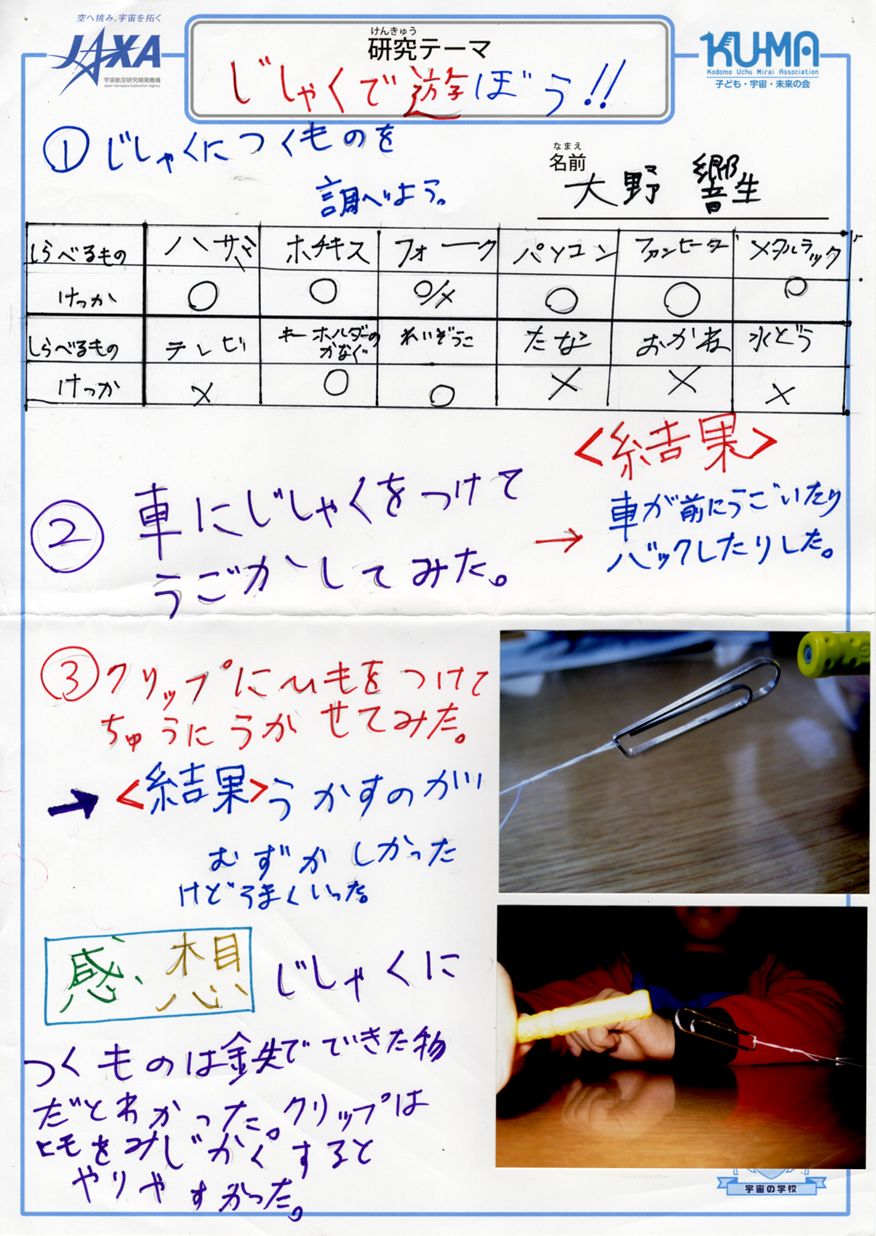 空へ挑み、宇宙を拓く
JAXA
宇宙航空研究開発機構
Japan Aerospace Exploration Agency
けんきゅう
研究テーマ
じしゃくで遊ぼう!!
KU-MA
Kodomo Uchu Mirai Association
子ども・宇宙・未来の会
①じしゃくにつくものを
調べよう。
なまえ
名前
大野 響生
しらべるもの ハサミ ホチキス フォーク パソコン ファンヒーター メタルラック
けっか ○ ○ ○/× ○ ○ ○
しらべるもの テレビ キーホルダーのかなぐ れいぞうこ たな おかね 水どう
けっか × ○ ○ × × ×
②車にじしゃくをつけて
うごかしてみた。
→
<結果>
車が前にうごいたり
バックしたりした。
③クリップにひもをつけて
ちゅうにうかせてみた。
→<結果>うかすのが
むずかしかった
けどうまくいった。
感想 じしゃくに
つくものは鉄でできた物
だとわかった。クリップは
ヒモをみじかくすると
やりやすかった。
宇宙の学校